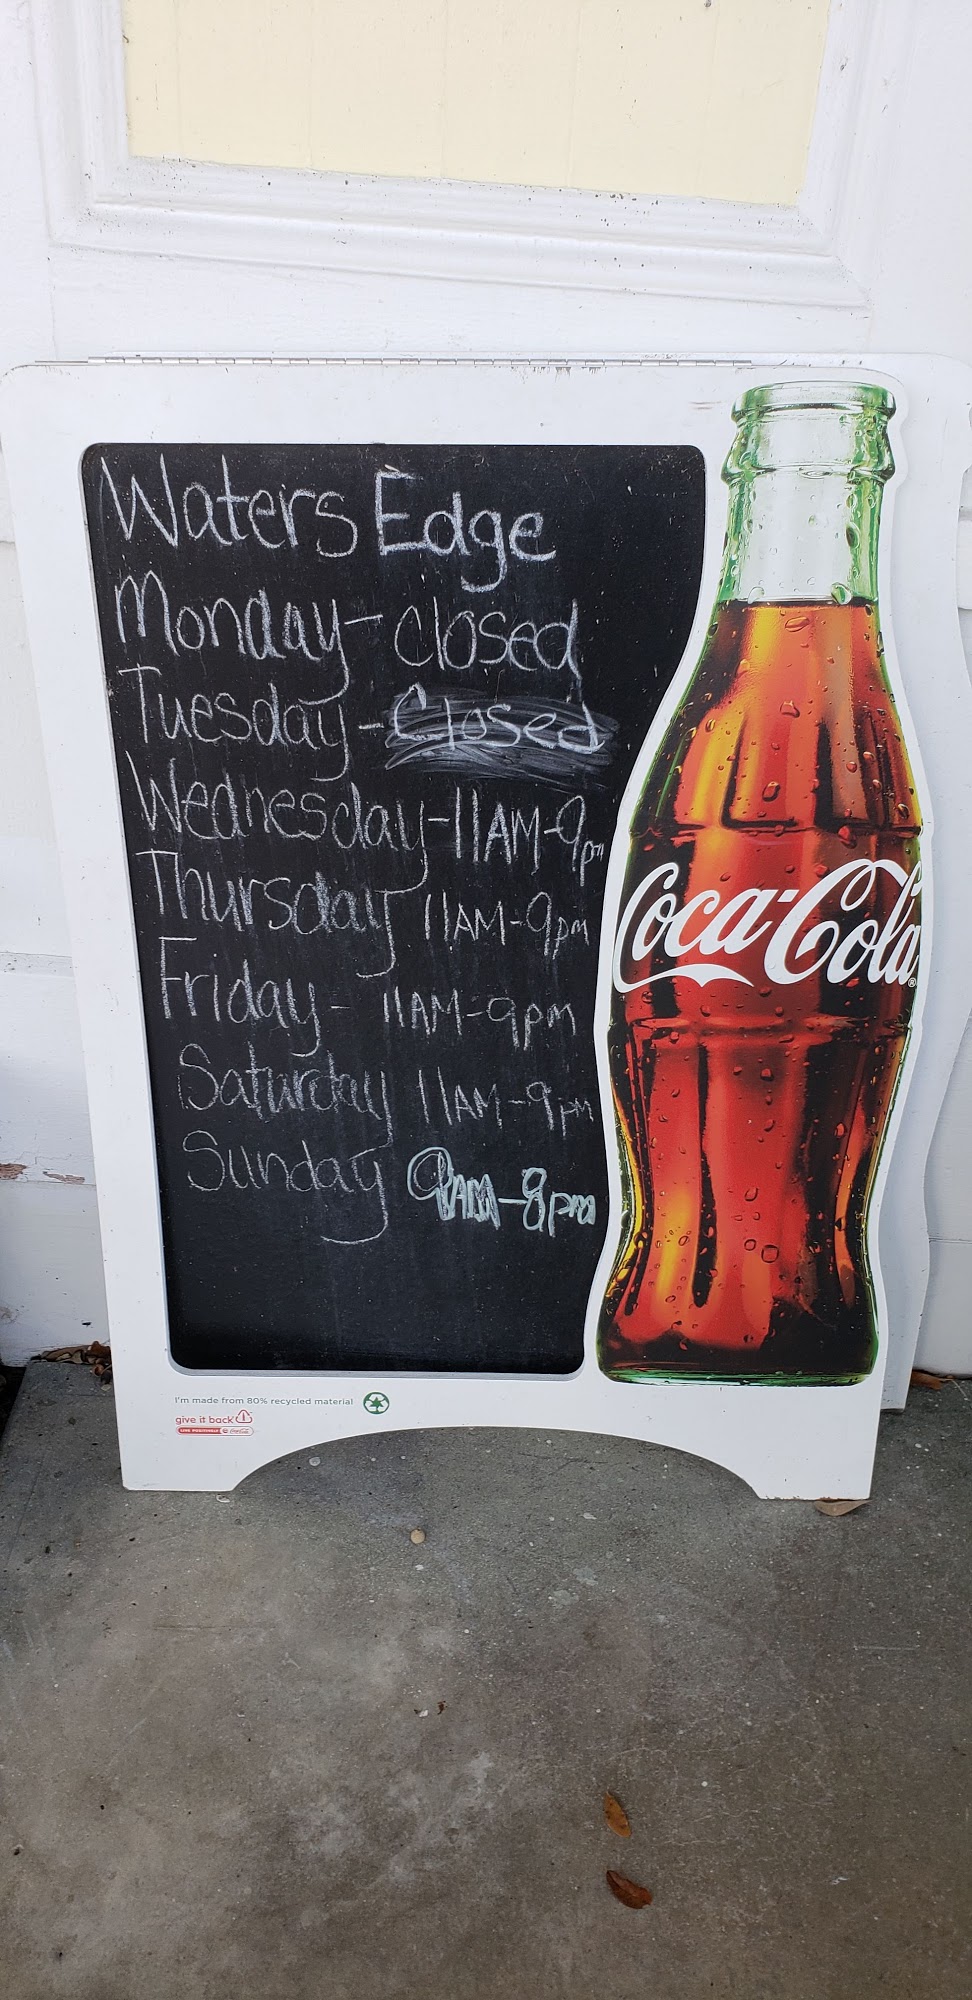 Waters Edge
Monday - closed
Tuesday - Closed
Wednesday - 11AM - 9pm
Thursday 11AM - 9pm
Friday - 11AM - 9pm
Saturday 11AM - 9pm
Sunday 9AM - 8pm
Coca-Cola
I'm made from 80% recycled material
give it back
LIVE POSITIVELY Coca-Cola